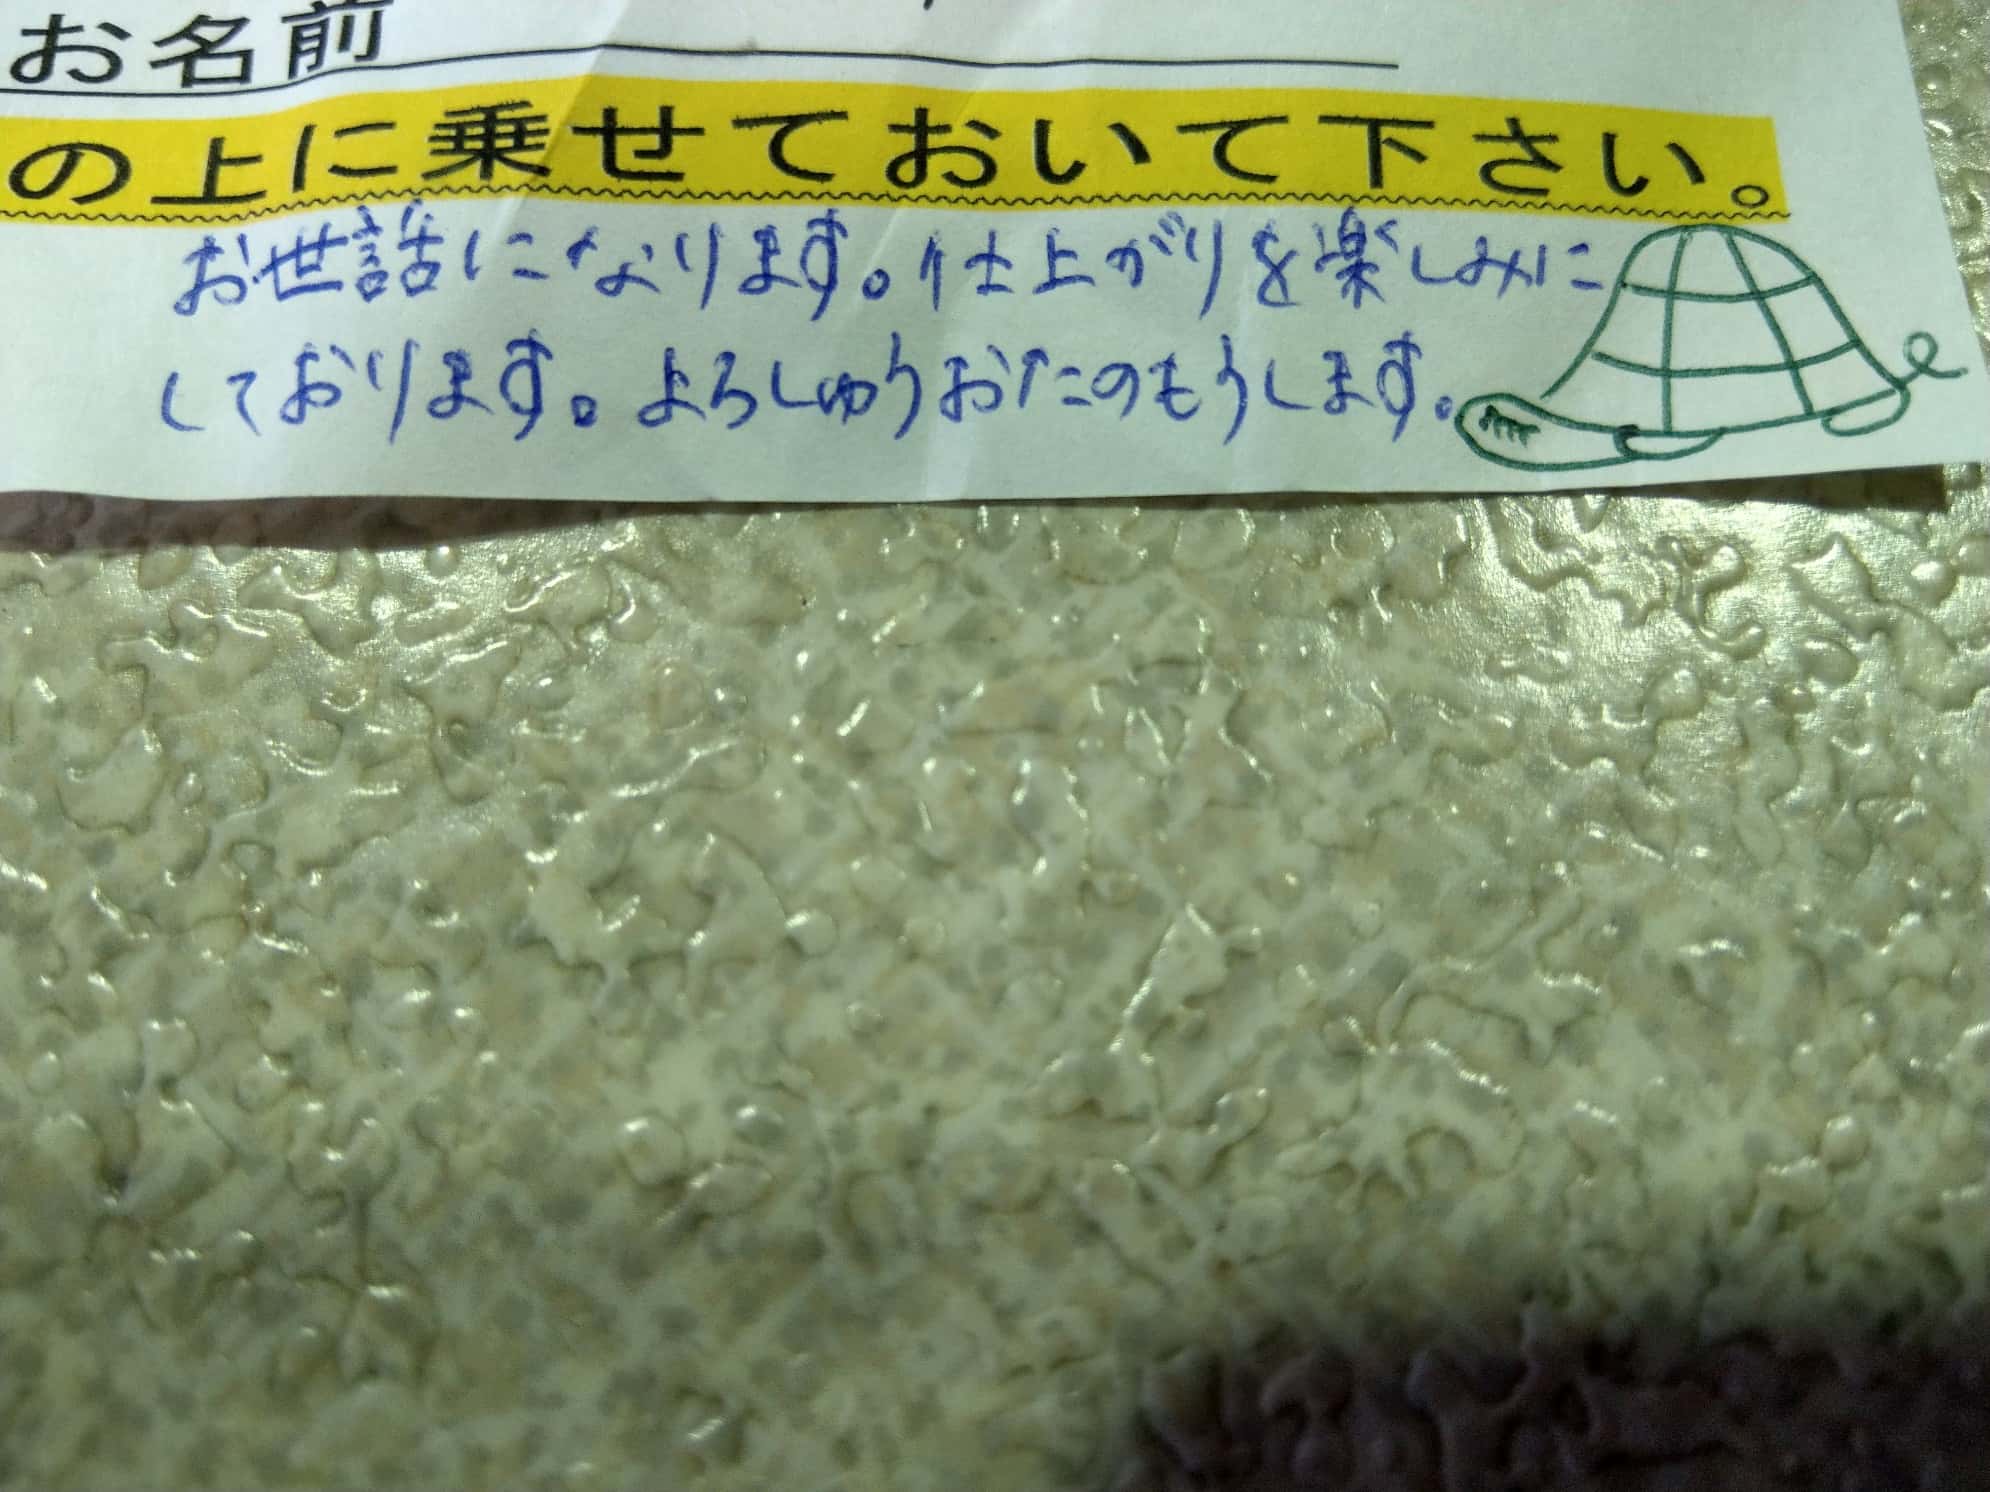 お名前
の上に乗せておいて下さい。
お世話になります。仕上がりを楽しみに
しております。よろしゅうおたのもうします。